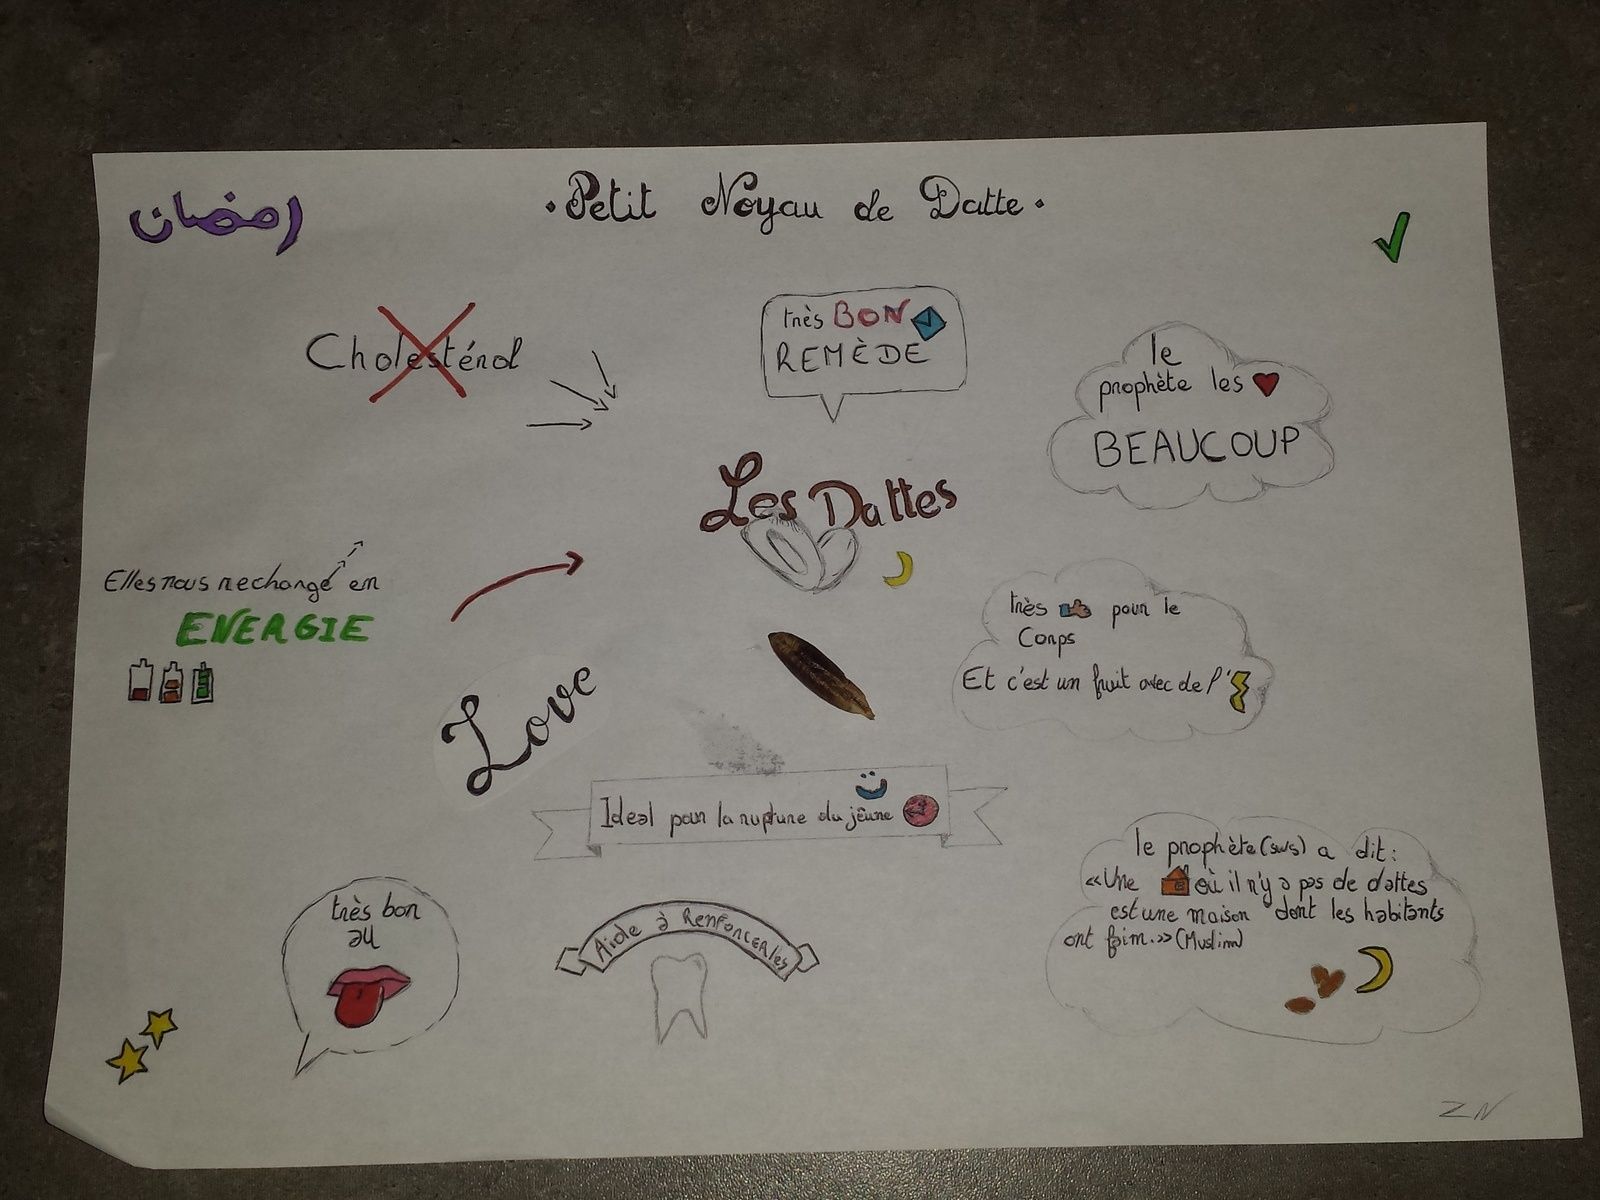 رمضان
·Petit Noyau de Datte·
Cholestérol
très BON
REMÈDE
le
prophète les
BEAUCOUP
Les Dattes
Elles nous rechange en
ENERGIE
très pour le
Corps
Et c'est un fruit avec de l'
Love
Ideal pour la rupture du jêune
le prophète (sws) a dit:
«Une où il n'y a pas de dattes
est une maison dont les habitants
ont faim.»(Muslim)
très bon
au
Aide à Renforcer les
ZN